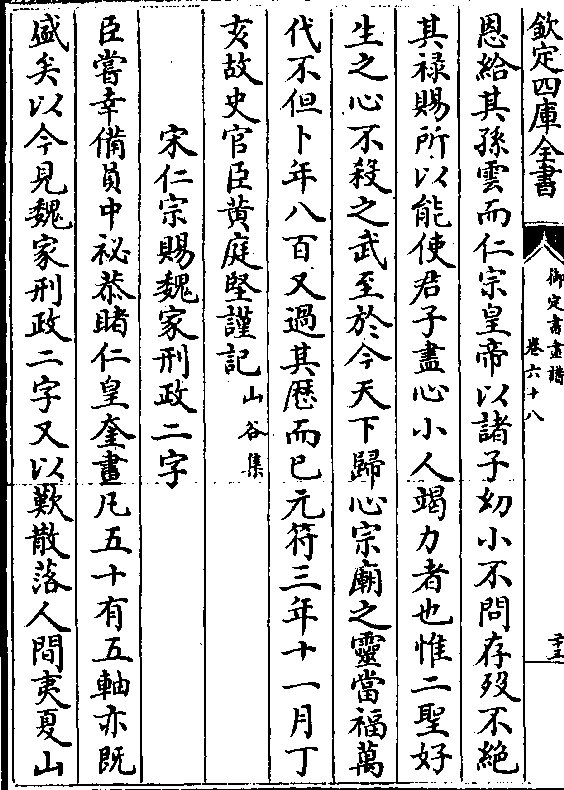 欽定四庫全書
御定書畫譜
卷六十八
二十三
恩給其孫雲而仁宗皇帝以諸子幼小不問存殁不絶
其祿賜所以能使君子盡心小人竭力者也惟二聖好
生之心不殺之武至於今天下歸心宗廟之靈當福萬
代不但卜年八百又過其歴而已元符三年十一月丁
亥故史官臣黄庭堅謹記山谷集
宋仁宗賜魏家刑政二字
臣嘗幸備員中祕恭睹仁皇奎畫凡五十有五軸亦既
盛矣以今見魏家刑政二字又以歎散落人間夷夏山